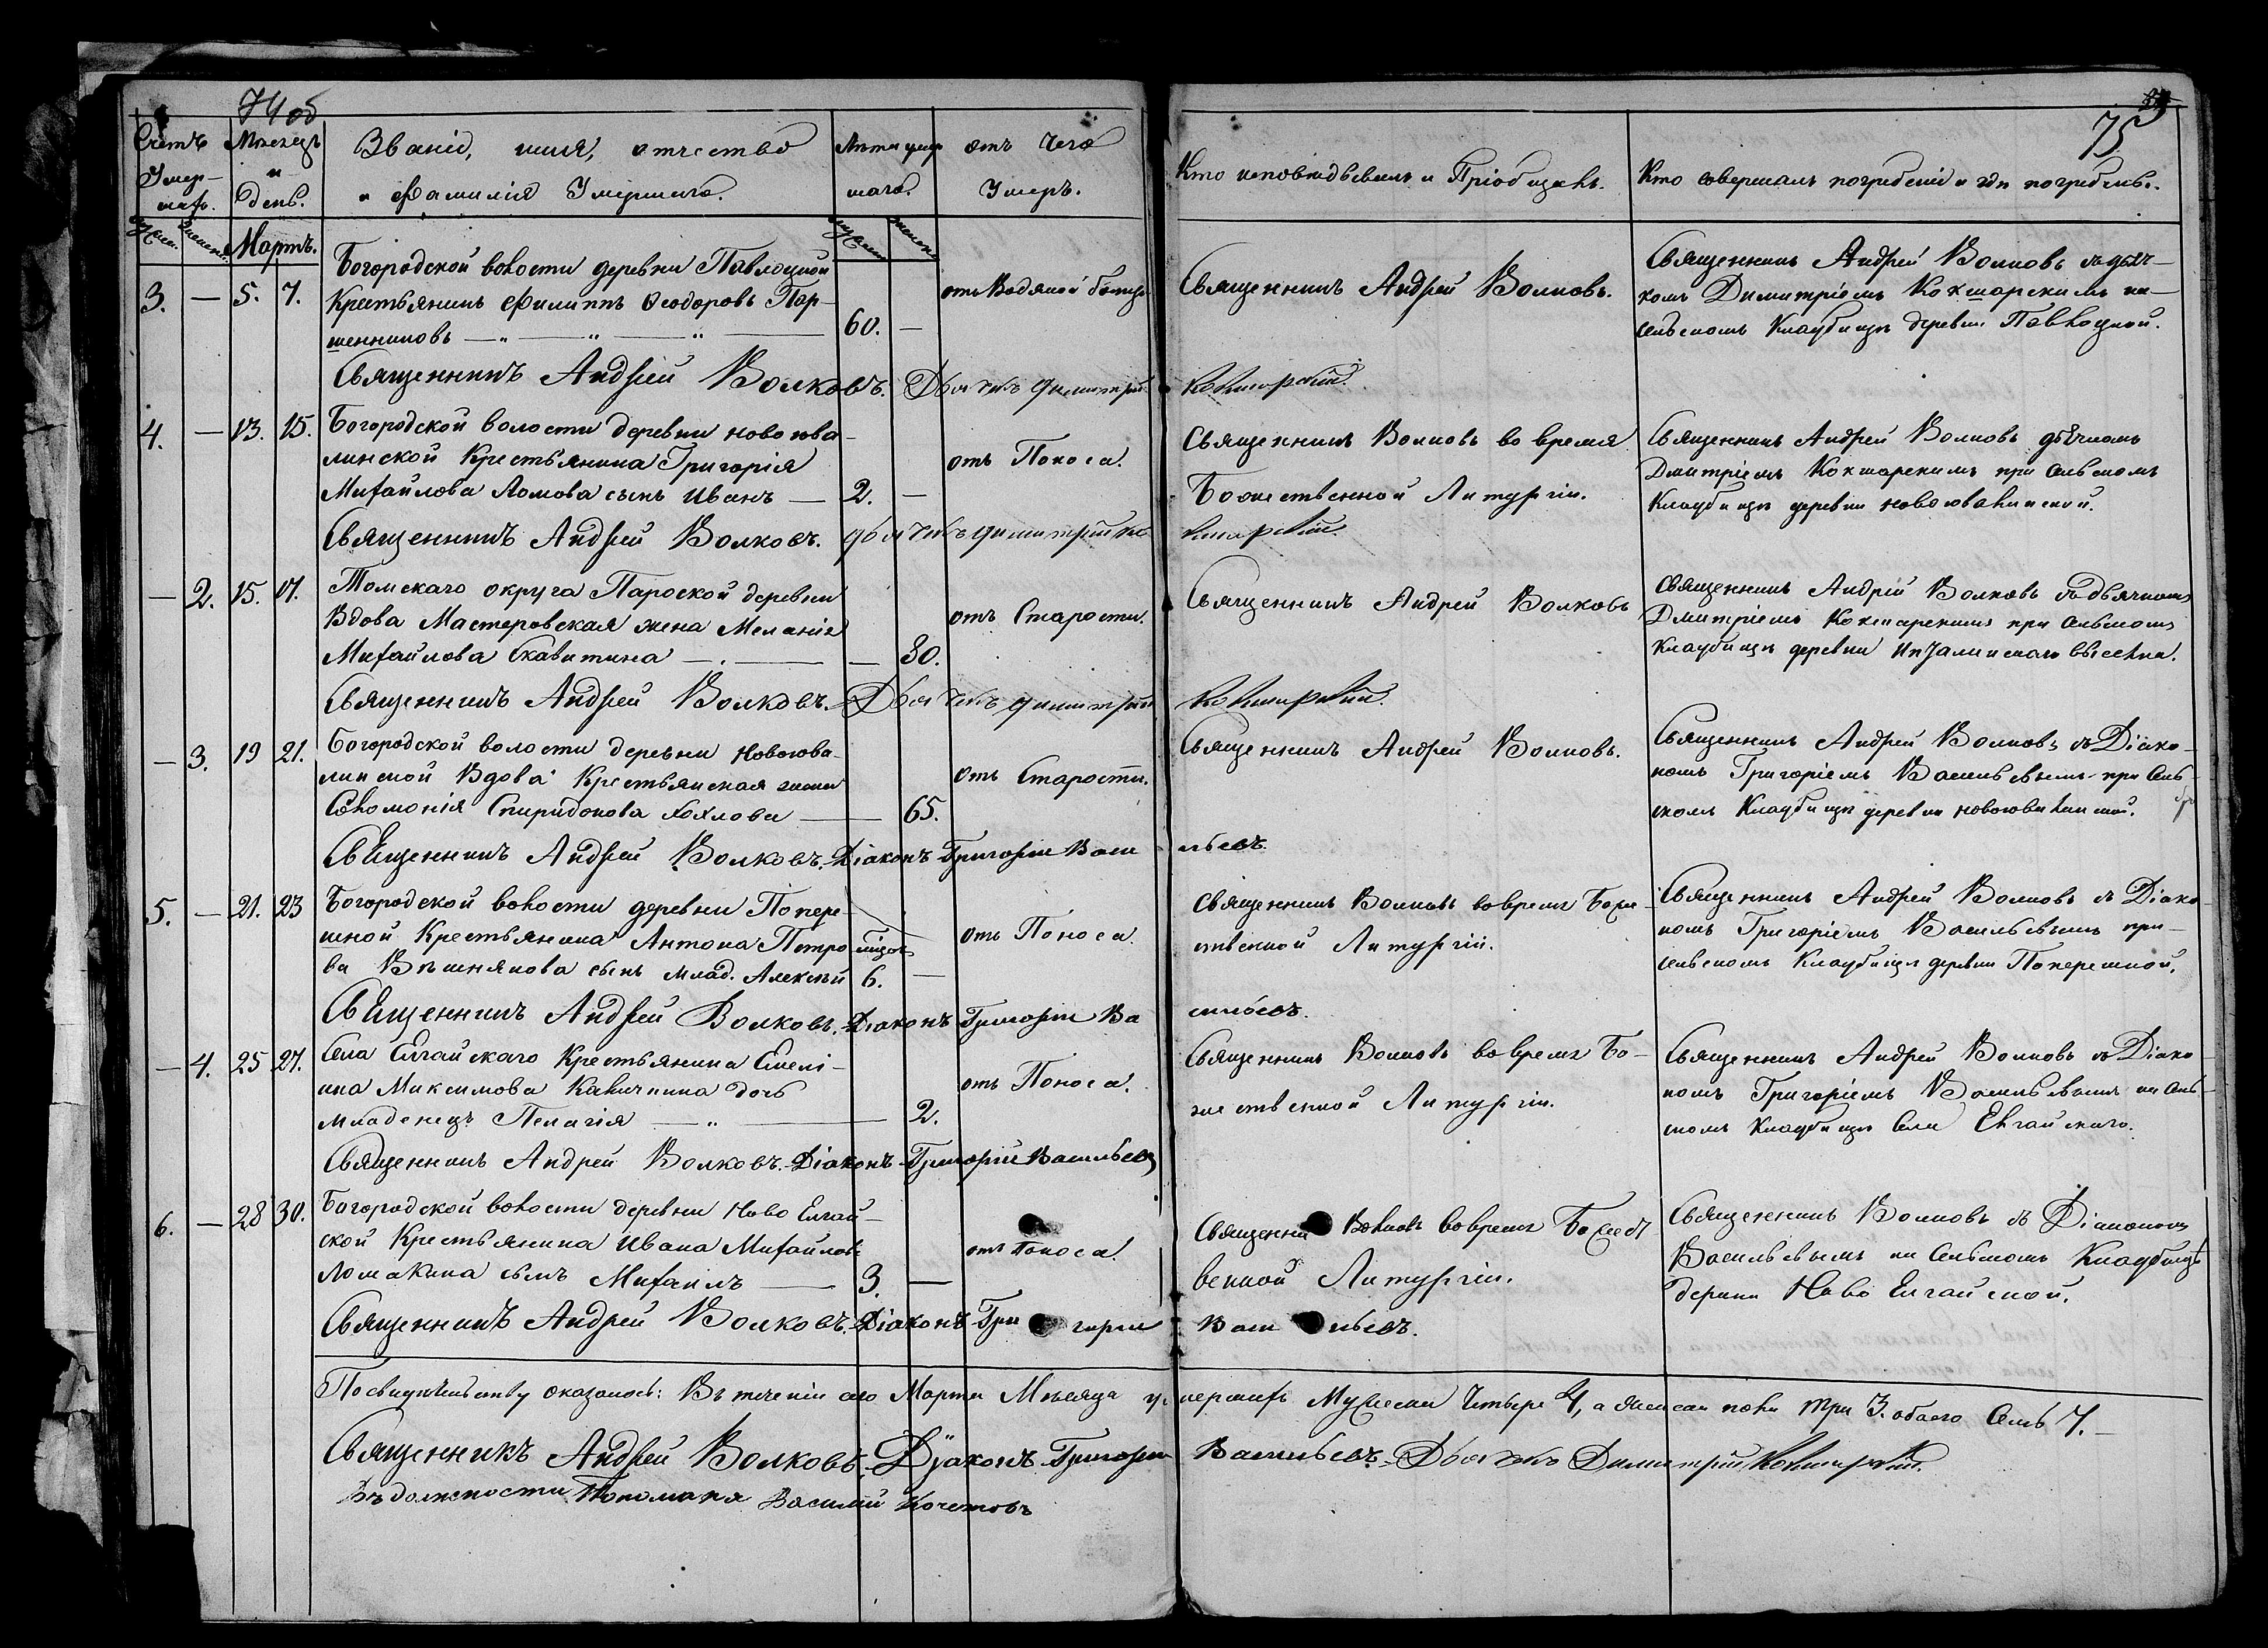 74 об
75
Счетъ Умер-шихъ. Мѣсяцъ и день. Званіе, имя, отчество и Фамилія Умершаго. Лѣта умершаго. отъ Чего Умеръ. Кто исповѣдывалъ и Пріобщалъ. Кто совершалъ погребеніе и гдѣ погребенъ.
Мартъ.
3. — 5. 7. Богородской волости деревни Павлоцкой
Крестьянинъ Филиппъ Ѳеодоровъ Пар-
шенниковъ 60. —
отъ Водяной
Священникъ Андрей Волковъ.
Священникъ Андрей Волковъ съ дьяч-
комъ Димитріемъ Кокшарскимъ на
сельскомъ Кладбищѣ деревни Павлоцкой.
Священникъ Андрей Волковъ. Дьячекъ Димитрій Кокшарскій.
4. — 13. 15. Богородской волости деревни Новоюва-
линской Крестьянина Григорія
Михайлова Ломова сынъ Иванъ — 2. —
отъ Поноса.
Священникъ Волковъ во время
Божественной Литургіи.
Священникъ Андрей Волковъ дьячкомъ
Дмитріемъ Кокшарскимъ при сельскомъ
Кладбищѣ деревни Новоювалинской.
Священникъ Андрей Волковъ. дьячекъ Димитрій Кокшарскій.
— 2. 15. 17. Томскаго округа деревни
Вдова Мастеровская жена Меланія
Михайлова Скавитина — 80.
отъ Старости.
Священникъ Андрей Волковъ
Священникъ Андрей Волковъ съ дьячкомъ
Дмитріемъ Кокшарскимъ при сельскомъ
Кладбищѣ деревни
Священникъ Андрей Волковъ. Дьячекъ Димитрій Кокшарскій.
— 3. 19 21. Богородской волости деревни Новоюва-
линской Вдова Крестьянская жена
Соломонія Спиридонова Хохлова — 65.
отъ Старости.
Священникъ Андрей Волковъ.
Священникъ Андрей Волковъ съ Діако-
номъ Григоріемъ Васильевымъ при Сель-
скомъ Кладбищѣ деревни Новоювалинской.
Священникъ Андрей Волковъ. Діаконъ Григорій Васильевъ.
5. — 21. 23 Богородской волости деревни Попере-
шной Крестьянина Антона Петро-
ва Вишнякова сынъ млад. Алексѣй 6. —
отъ Поноса.
Священникъ Волковъ во время Боже-
ственной Литургіи.
Священникъ Андрей Волковъ съ Діако-
номъ Григоріемъ Васильевымъ при
сельскомъ Кладбищѣ деревни Поперешной.
Священникъ Андрей Волковъ. Діаконъ Григорій Васильевъ.
— 4. 25 27. Села Елгайскаго Крестьянина Емелі-
яна Максимова Каличкина дочь
младенецъ Пелагія — 2.
отъ Поноса.
Священникъ Волковъ во время Бо-
жественной Литургіи.
Священникъ Андрей Волковъ съ Діако-
номъ Григоріемъ Васильевымъ на Сель-
скомъ Кладбищѣ Села Елгайскаго.
Священникъ Андрей Волковъ. Діаконъ Григорій Васильевъ
6. — 28 30. Богородской волости деревни Ново Елгай-
ской Крестьянина Ивана Михайлова
Ломакина сынъ Михаилъ — 3. —
отъ Поноса.
Волковъ во время Божест-
венной Литургіи.
Священникъ Волковъ съ Діакономъ
Васильевымъ на Сельскомъ Кладбищѣ
деревни Ново Елгайской.
Священникъ Андрей Волковъ. Діаконъ Григорій Васильевъ.
По свидѣтельству оказалось: Въ теченіи сего Марта Мѣсяца умершихъ Мужеска Четыре 4, а женска пола три 3. обоего Семь 7.
Священникъ Андрей Волковъ. Діаконъ Григорій Васильевъ. Дьячекъ Димитрій Кокшарскій.
Въ должности Пономаря Василій Кочетовъ